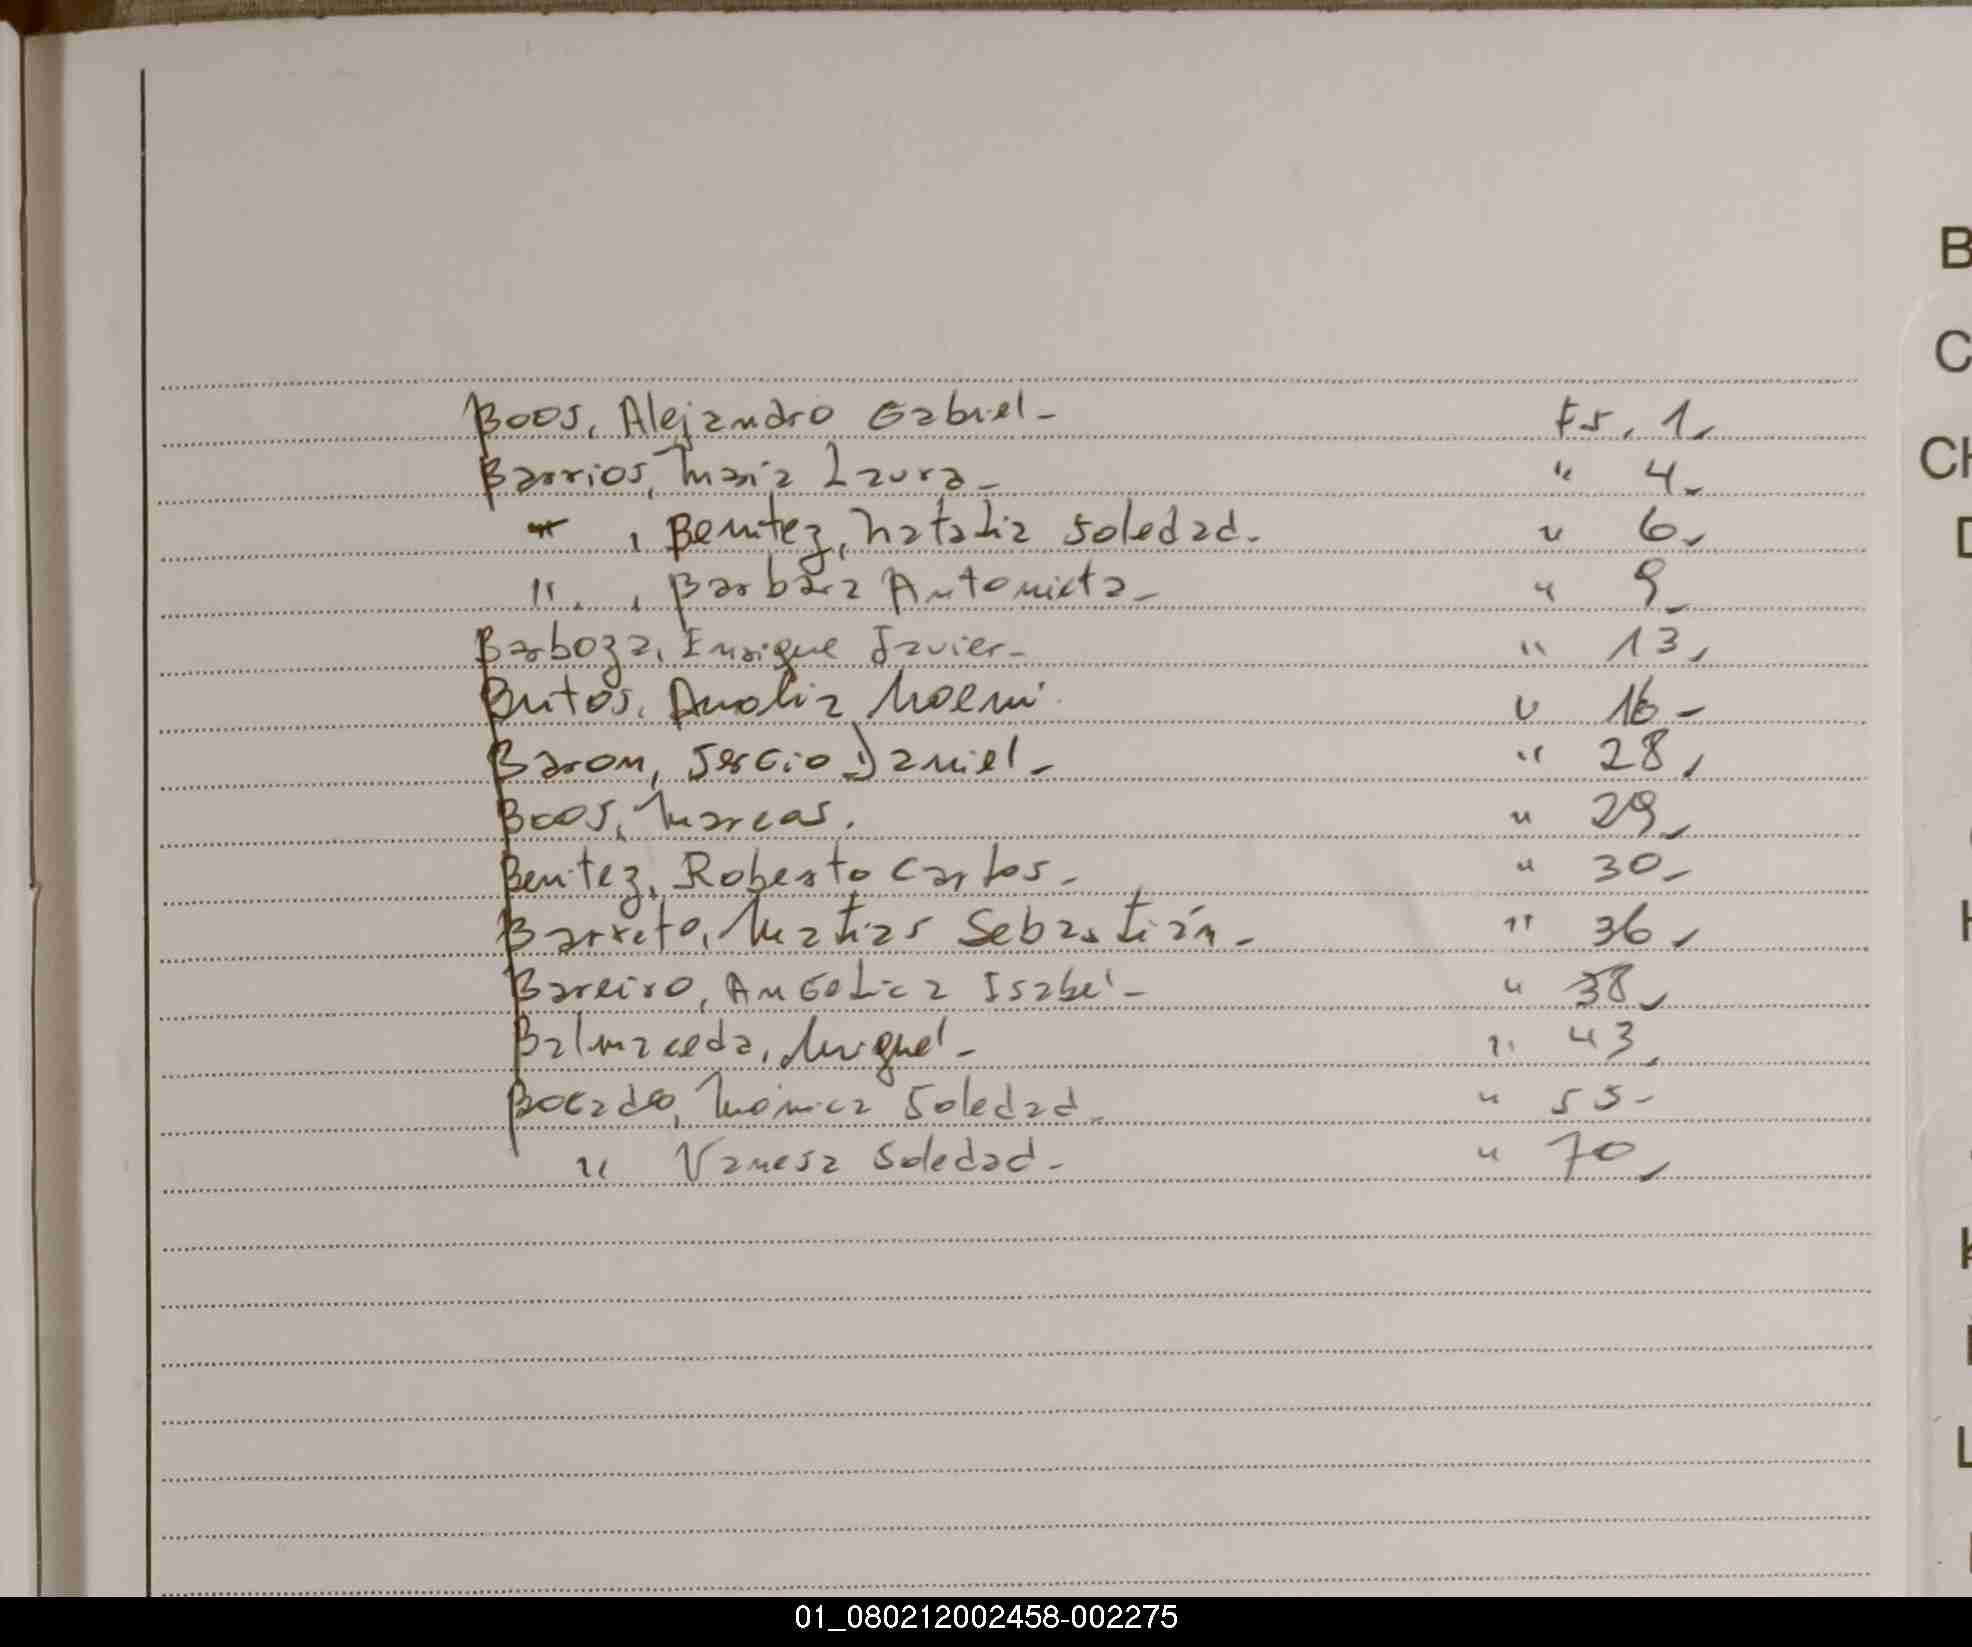 Boos, Alejandro Gabriel - Fs. 1,
Barrios, Maria Laura - " 4,
" , Benitez, Natalia Soledad. " 6,
" , Barbara Antonieta - " 9
Barboza, Enrique Javier - " 13,
Britos, Analia Noemi. " 16 -
Baron, Sergio Daniel. - " 28,
Boos, Marcos. " 29,
Benitez, Roberto Carlos. " 30 -
Barreto, Matias Sebastián - " 36,
Bareiro, Angelica Isabel - " 38,
Balmaceda, Miguel - " 43,
Bocado, Mónica Soledad. " 55 -
" Vanesa Soledad - " 70,
B
C
CH
D
H
K
L
01_080212002458-002275